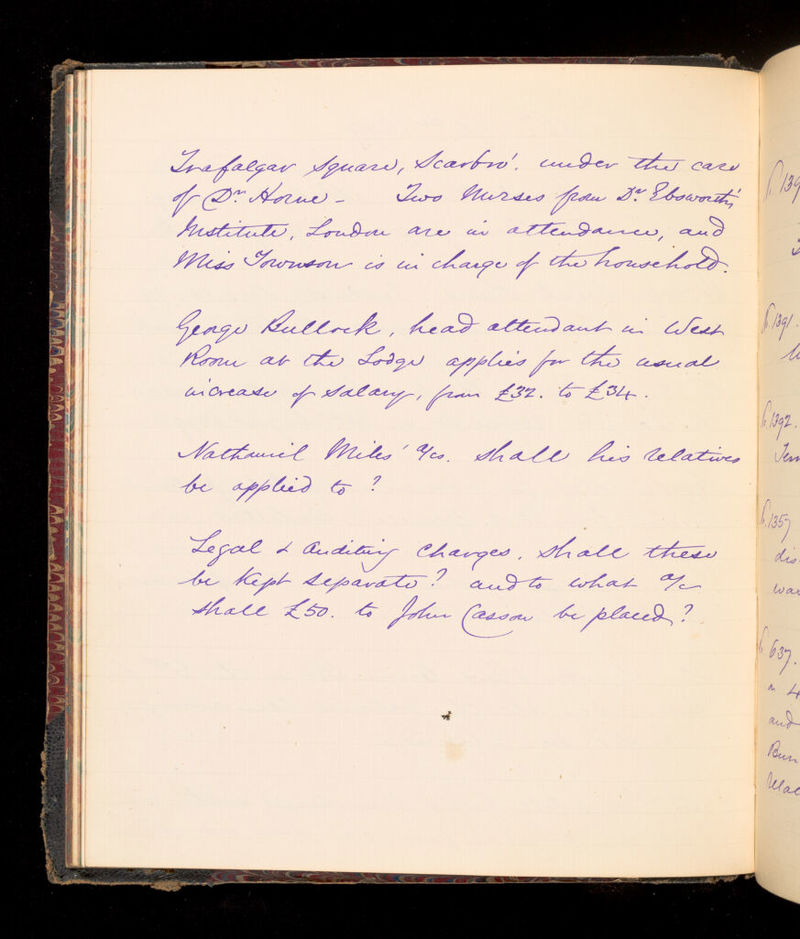 Trafalgar Square, Scarbro'. under the care
of Dr Horne - Two Nurses from Dr Ebsworth's
Institute, London are in attendance, and
Miss Townson is in charge of the household.
George Bullock, head attendant in West
Room at the Lodge applies for the usual
increase of salary, from £32. to £34.
Nathaniel Miles' a/cs. shall his relatives
be applied to?
Legal & Auditing Charges. Shall these
be kept separate? and to what a/c
shall £50. to John Casson be placed?
P. 139
P. 1391.
P. 1392.
P. 1357
dis
P. 637.
and